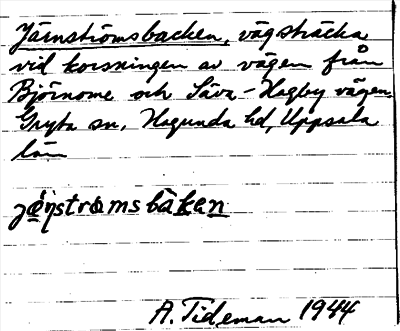 Järnströmsbacken, vägsträcka
vid korsningen av vägen från
Björnome och Säva-Hagby vägen.
Gryta sn, Hagunda hd, Uppsala
län
A. Tideman 1944